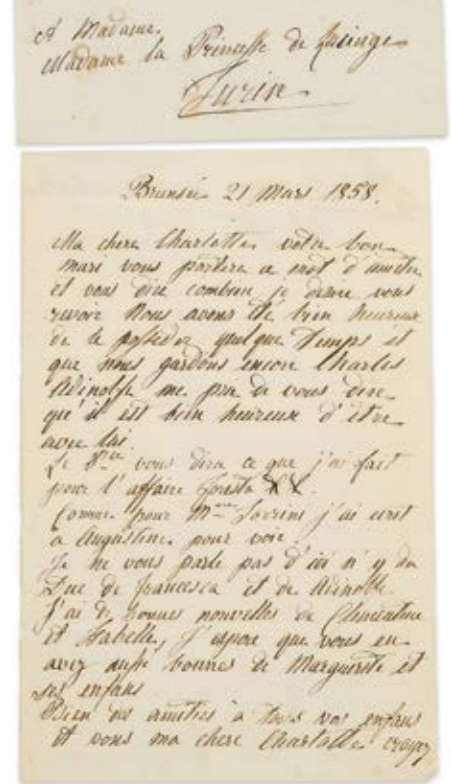 A Madame
Madame la Princesse de Lucinge
Turin
Brunsée 21 Mars 1858.
Ma chere Charlotte votre bon
mari vous portera ce mot d'amitié
et vous dire combien je désire vous
revoir Nous avons été bien heureux
de le posséder quelque temps et
que nous gardons encore Charles
Adinolfe me prie de vous dire
qu'il est bien heureux d'être
avec lui.
Le vous dira ce que j'ai fait
pour l'affaire
Comme pour Mme j'ai écrit
a Augustine pour voir
Je ne vous parle pas d'ici
Duc de Francesca et de Adinolfe
J'ai de bonnes nouvelles de Clementine
et Isabelle, J'espere que vous en
avez aussi bonnes de Marguerite et
ses enfans
Bien des amitiés à tous vos enfans
Et vous ma chere Charlotte croyez